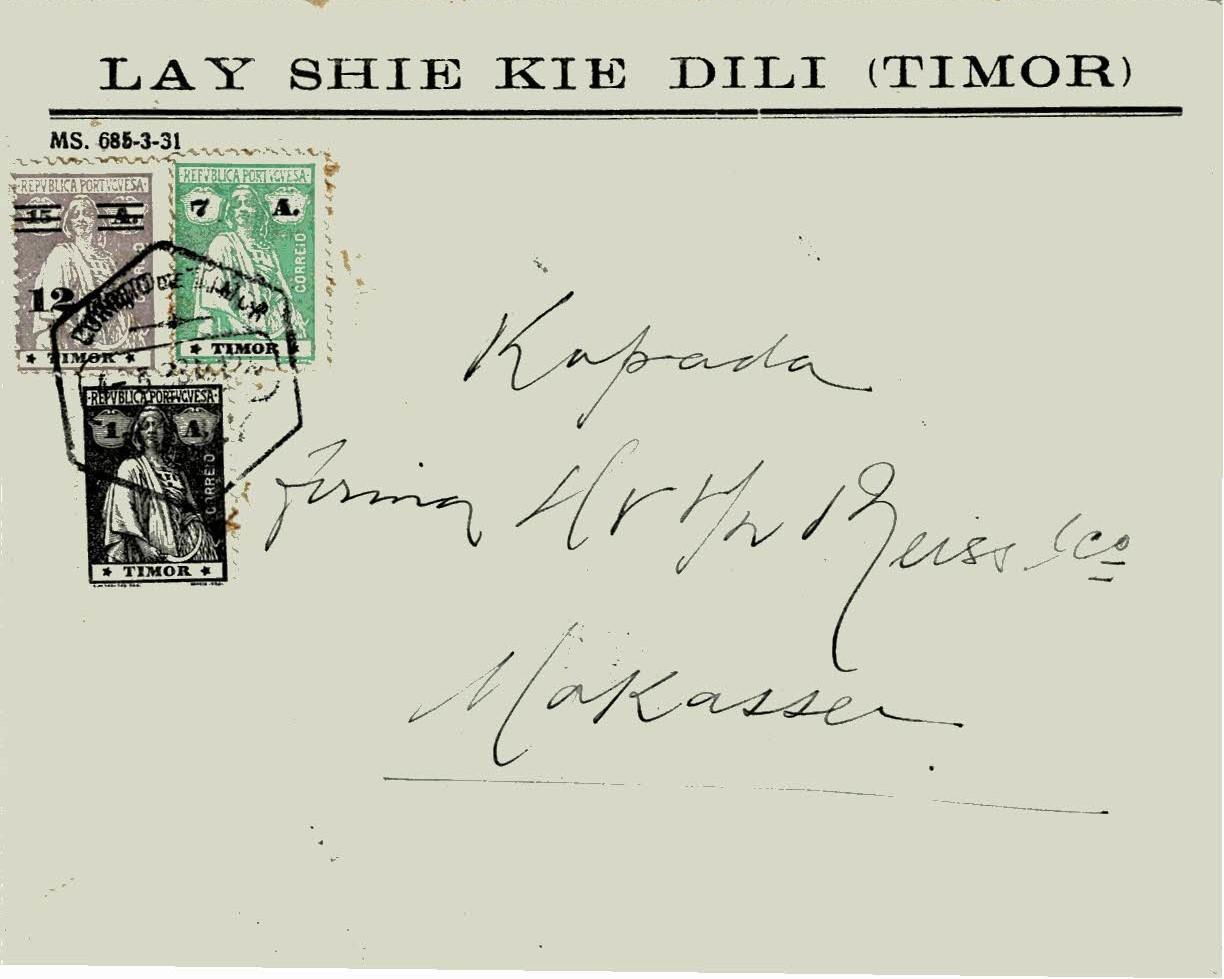 LAY SHIE KIE DILI (TIMOR)
MS. 685-3-31
REPVBLICA PORTVGVESA
15 A.
CORREIO
12
★ TIMOR ★
REPVBLICA PORTVGVESA
7 A.
CORREIO
★ TIMOR ★
CORREIO DE TIMOR
REPVBLICA PORTVGVESA
1 A.
CORREIO
★ TIMOR ★
Kapada
firma Reiss & Co
Makasser